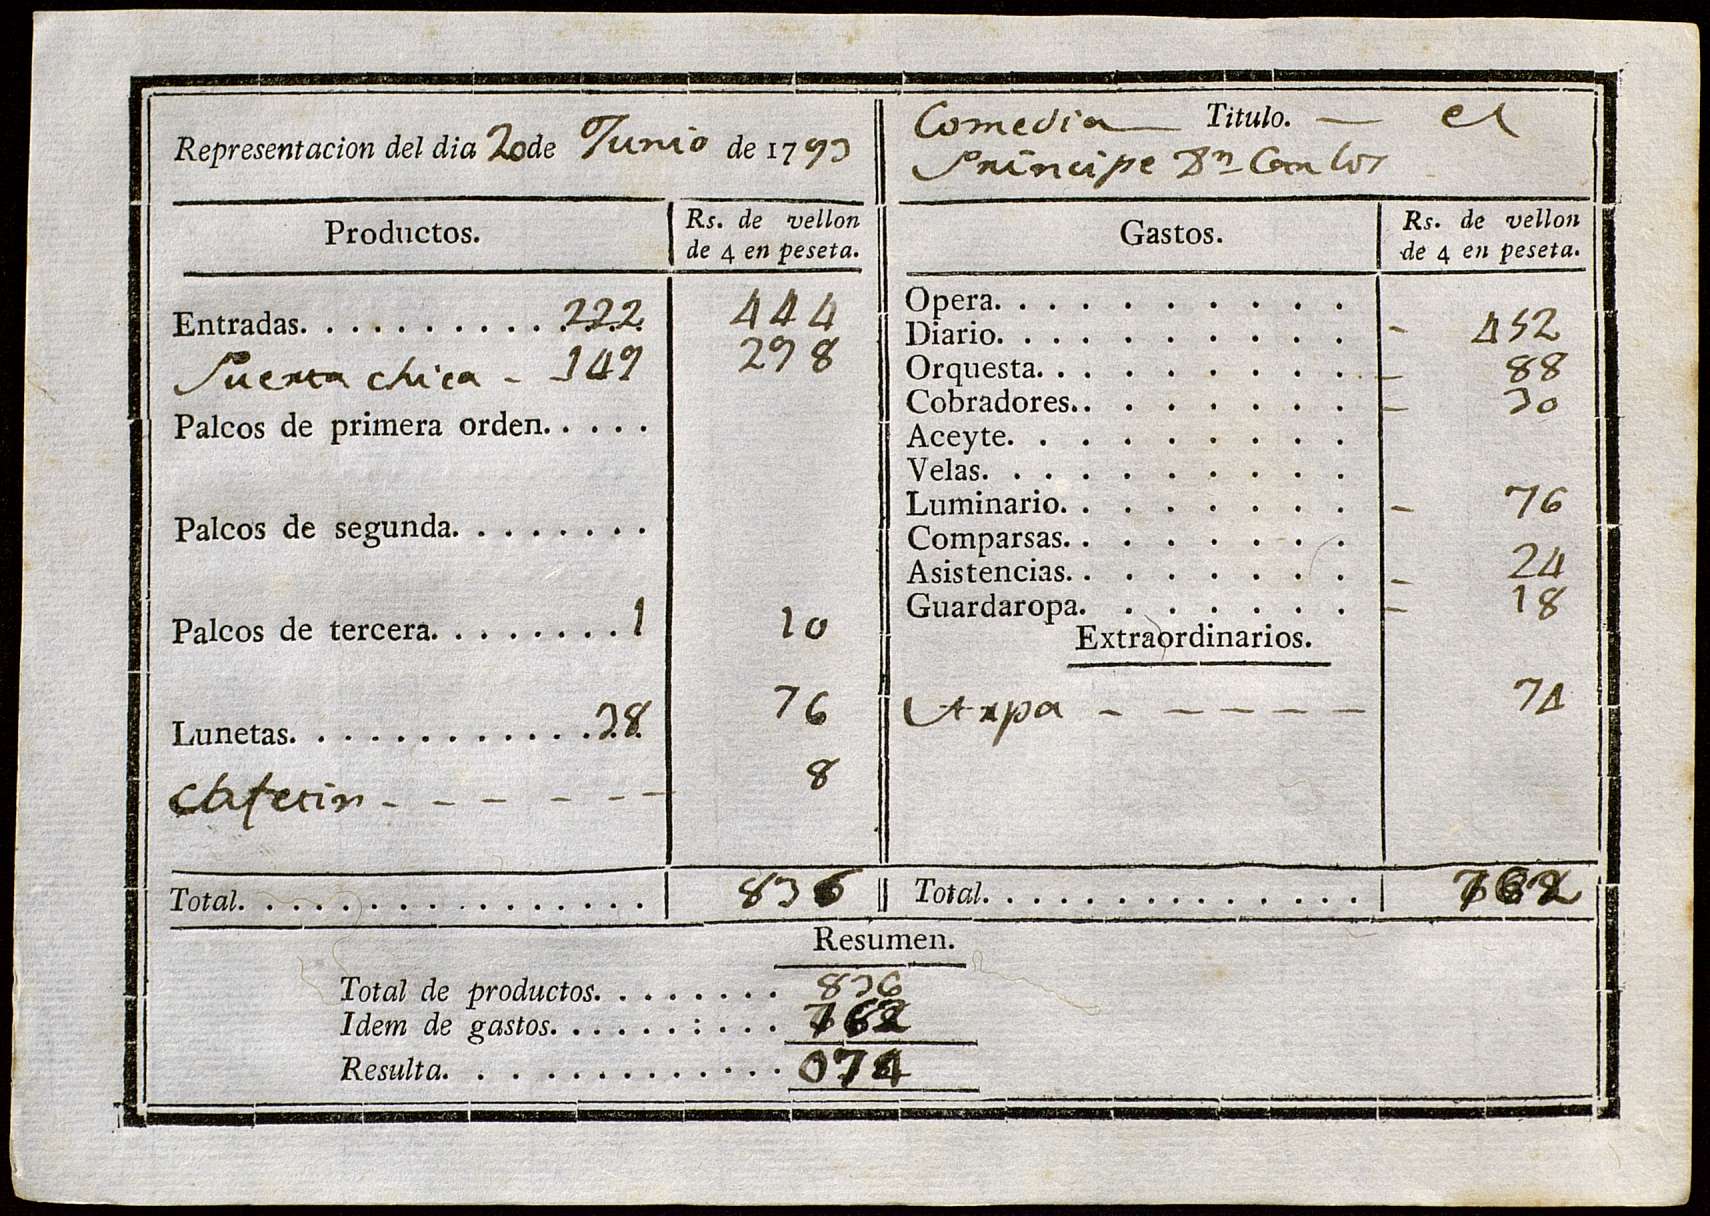 Representacion del dia 20 de Junio de 1793
Comedia — Titulo. — el
Principe Dn Carlos
Productos. Rs. de vellon de 4 en peseta.
Gastos. Rs. de vellon de 4 en peseta.
Entradas. . . . . . . . . . . 222 444
Puerta chica - - 149 298
Palcos de primera orden. . . . .
Palcos de segunda. . . . . . . .
Palcos de tercera. . . . . . . . 1 10
Lunetas. . . . . . . . . . . . 38 76
Cafetin - - - - - - - 8
Total. . . . . . . . . . . . . . . . 836
Opera. . . . . . . . . .
Diario. . . . . . . . . . - 452
Orquesta. . . . . . . . . - 88
Cobradores. . . . . . . . - 30
Aceyte. . . . . . . . .
Velas. . . . . . . . . .
Luminario. . . . . . . . - 76
Comparsas. . . . . . . .
Asistencias. . . . . . . . - 24
Guardaropa. . . . . . . - 18
Extraordinarios.
Arpa - - - - - - 74
Total. . . . . . . . . . . . . . . 762
Resumen.
Total de productos. . . . . . . . 836
Idem de gastos. . . . . . : . . . 762
Resulta. . . . . . . . . . . . . 074